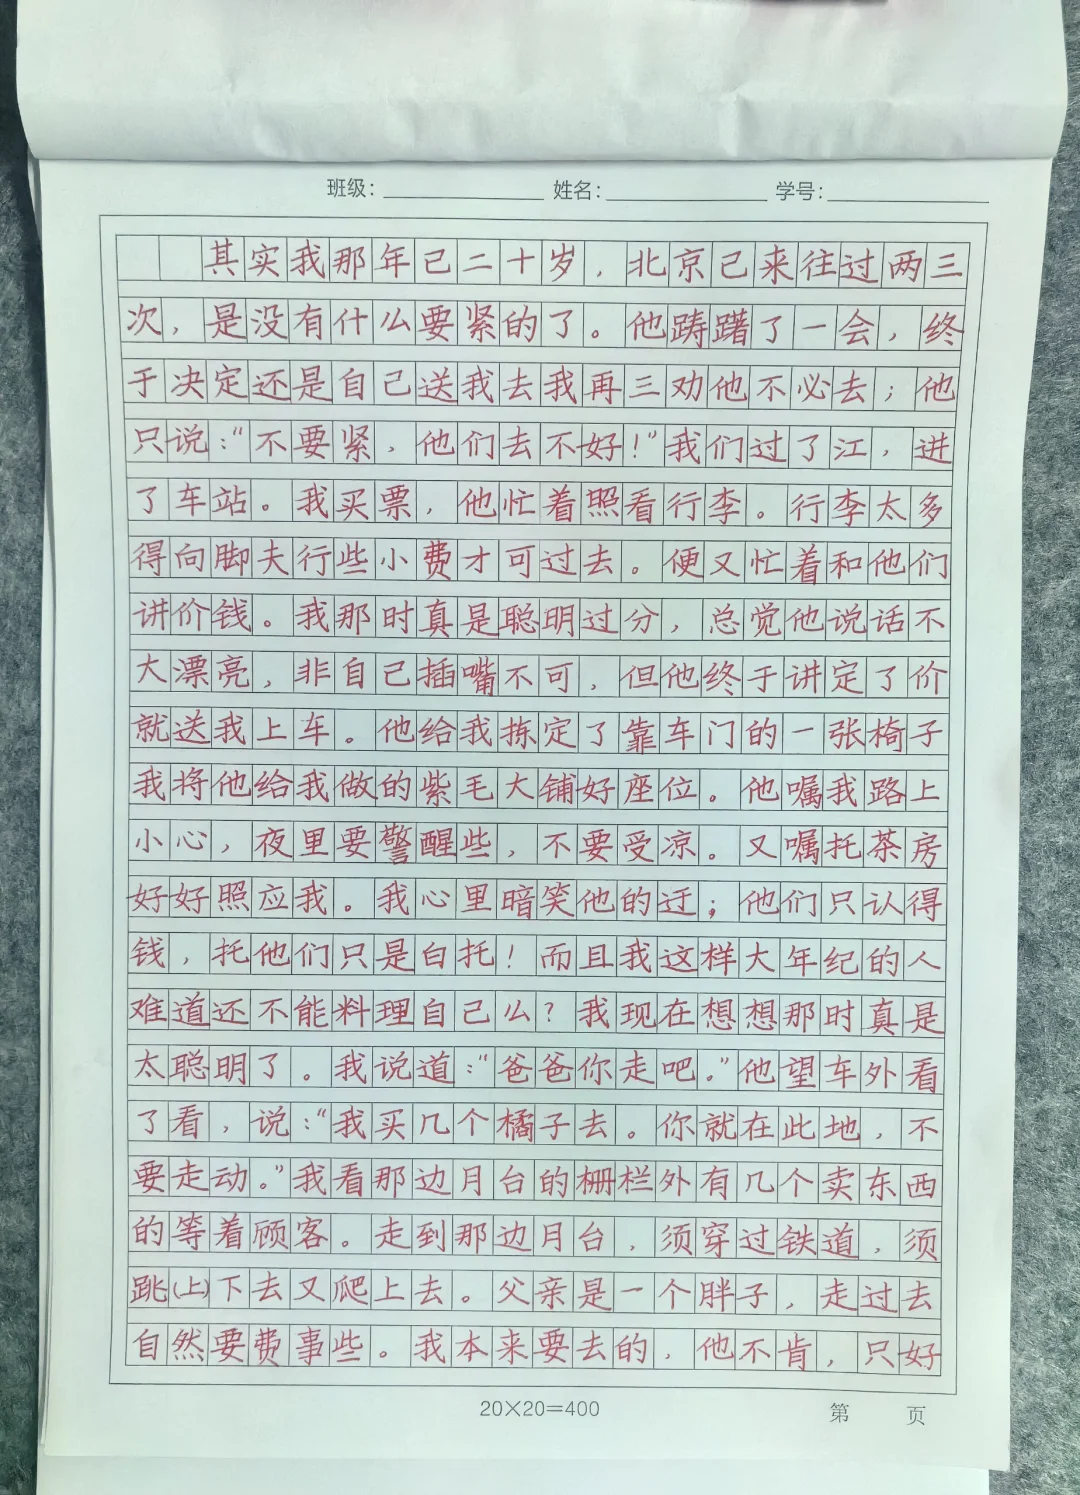 班级： 姓名： 学号：
其实我那年已二十岁，北京已来往过两三
次，是没有什么要紧的了。他踌躇了一会，终
于决定还是自己送我去我再三劝他不必去；他
只说：“不要紧，他们去不好！”我们过了江，进
了车站。我买票，他忙着照看行李。行李太多
得向脚夫行些小费才可过去。便又忙着和他们
讲价钱。我那时真是聪明过分，总觉他说话不
大漂亮，非自己插嘴不可，但他终于讲定了价
就送我上车。他给我拣定了靠车门的一张椅子
我将他给我做的紫毛大铺好座位。他嘱我路上
小心，夜里要警醒些，不要受凉。又嘱托茶房
好好照应我。我心里暗笑他的迂；他们只认得
钱，托他们只是白托！而且我这样大年纪的人
难道还不能料理自己么？我现在想想那时真是
太聪明了。我说道：“爸爸你走吧。”他望车外看
了看，说：“我买几个橘子去。你就在此地，不
要走动。”我看那边月台的栅栏外有几个卖东西
的等着顾客。走到那边月台，须穿过铁道，须
跳(上)下去又爬上去。父亲是一个胖子，走过去
自然要费事些。我本来要去的，他不肯，只好
20×20=400 第 页